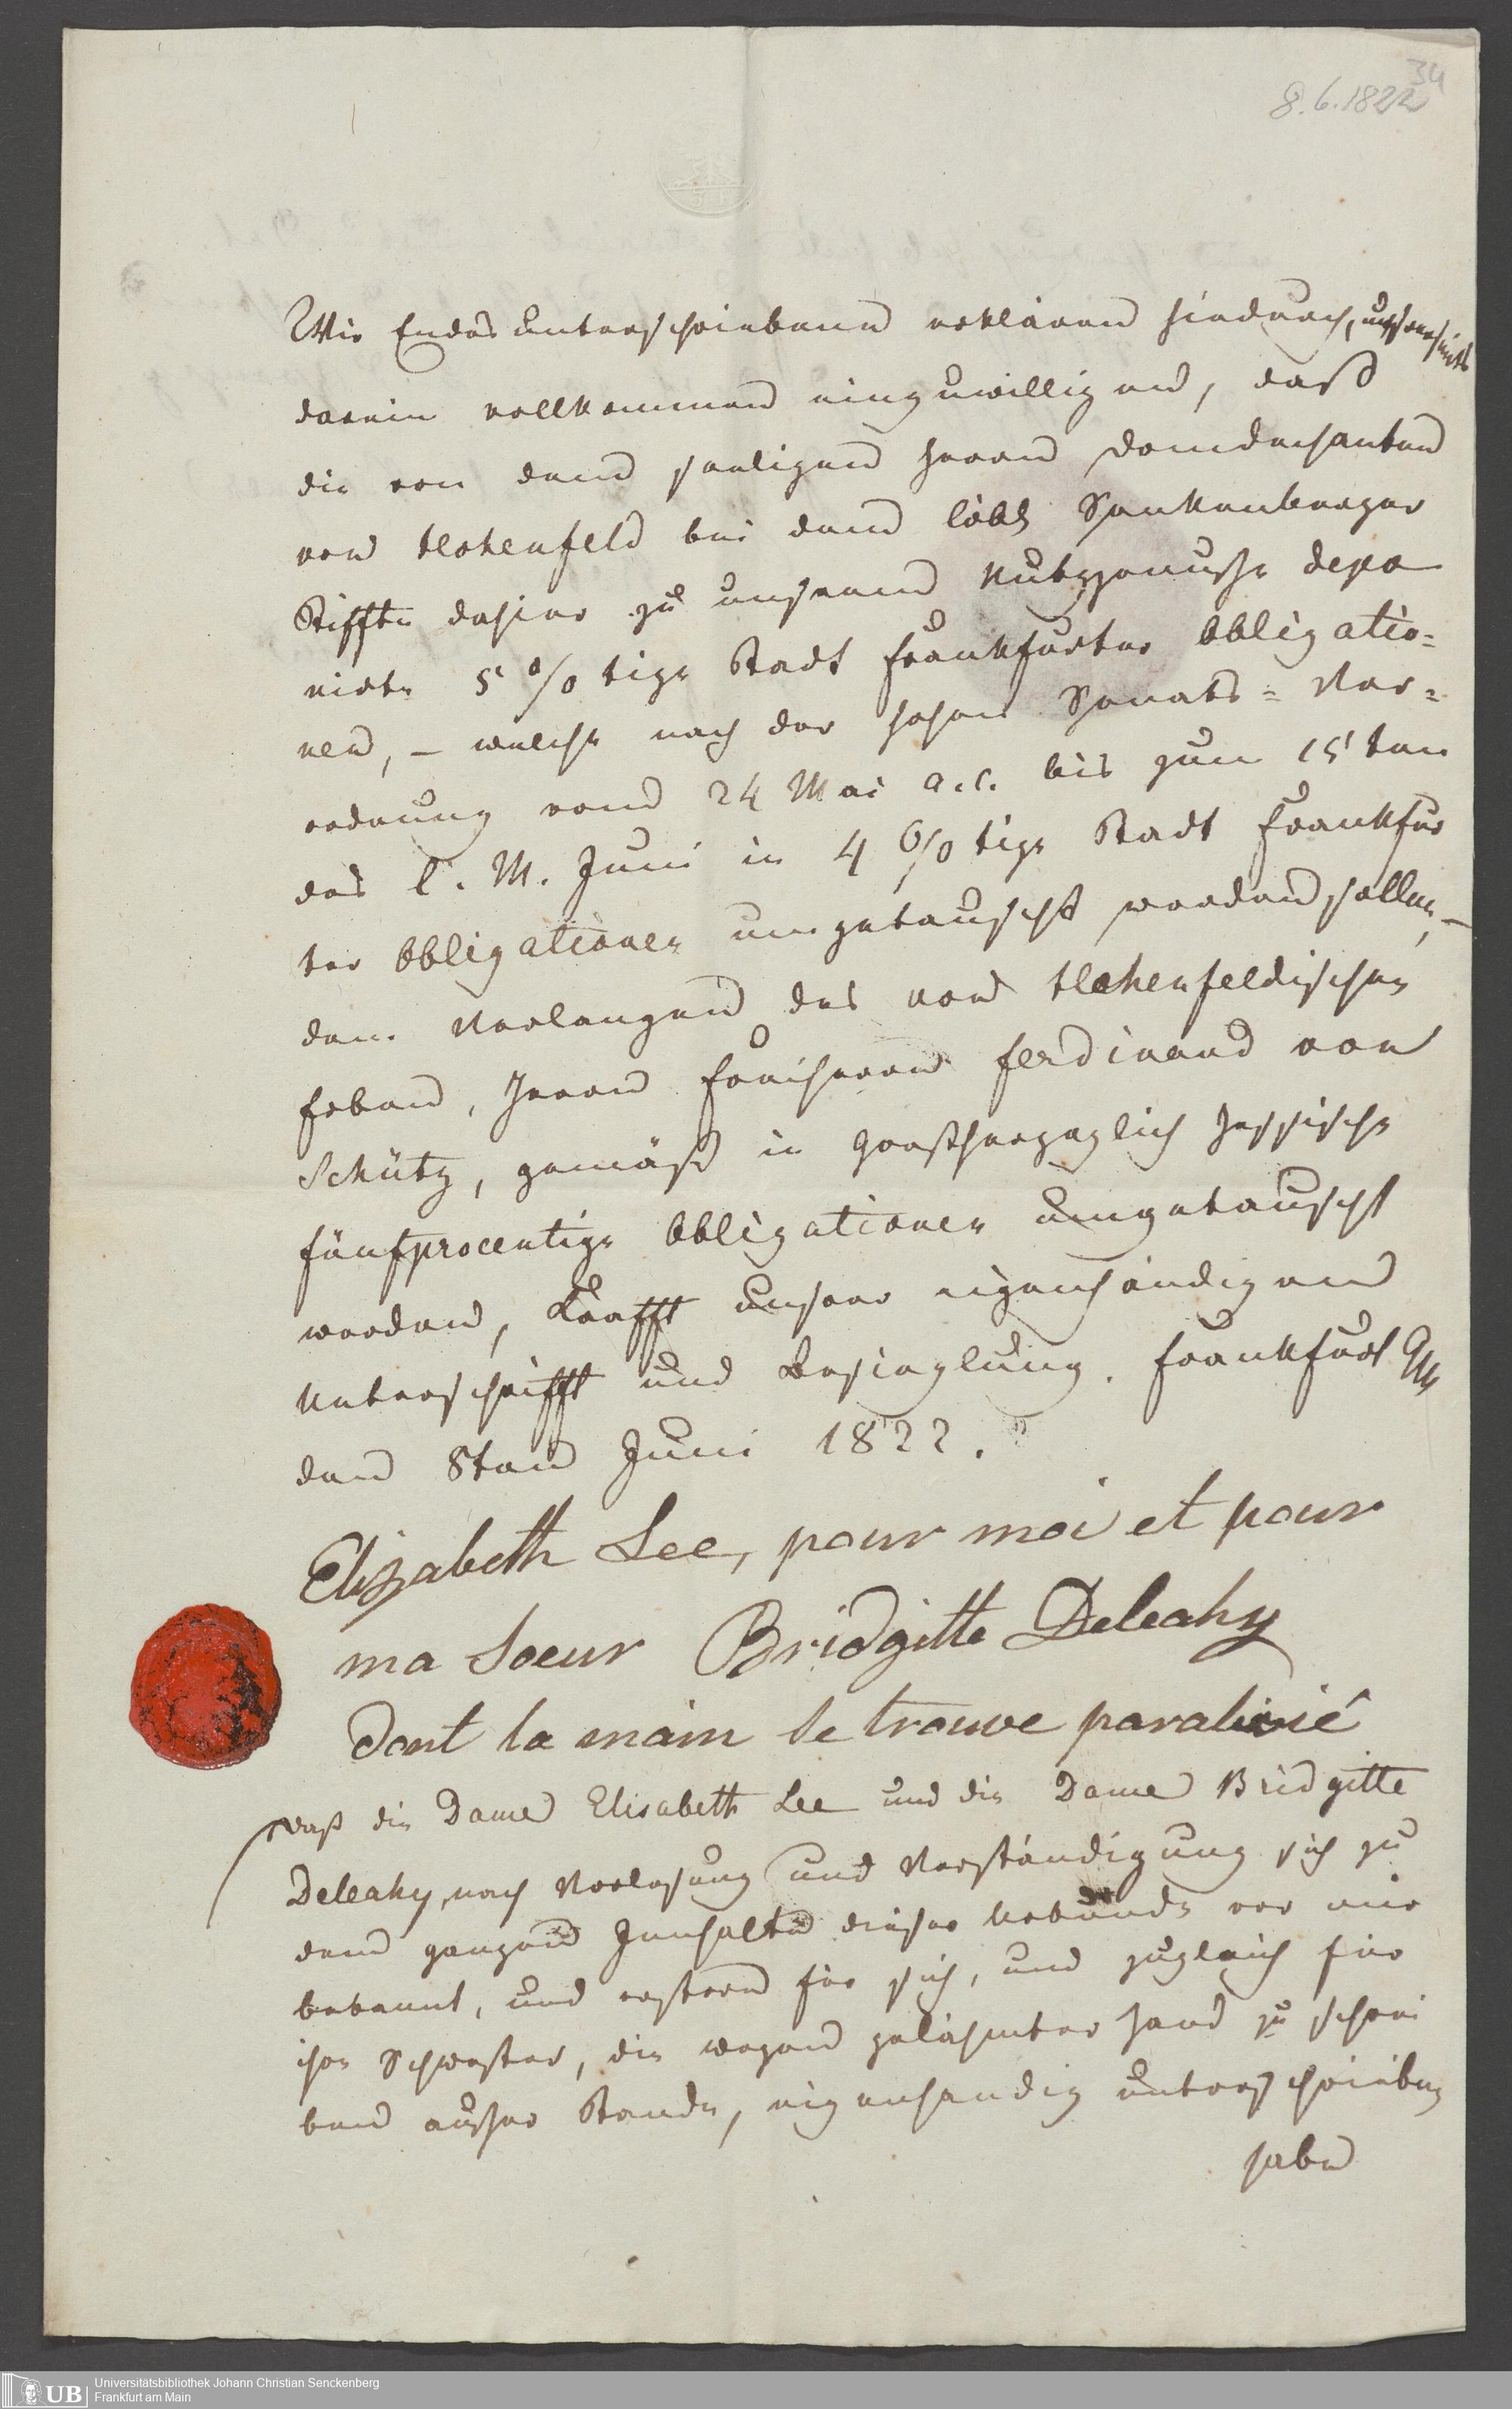 34
8.6.1822
Wir Endes unterschriebene erklären hierdurch, unsererseits
darein vollkommen einzuwilligen, daß
die von dem seeligen Herrn Domdechanten
von Hohenfeld bei dem löbl Senkenberger
Stiffte dahier zu unserem Nutzgenusse depo
nirte 5 %tige Stadt Frankfurter Obligatio=
nen, – welche nach der hohen Senats= Ver=
ordnung vom 24 Mai a. c. bis zum 15ten
des l. M. Juni in 4 %tige Stadt Frankfur
ter Obligationen umgetauscht werden sollen, –
dem Verlangen des von Hohenfeldischen
Erben, Herrn Freiherrn Ferdinand von
Schütz, gemäß in Großherzoglich Hessische
fünfprocentige Obligationen umgetauscht
werden, Krafft unserer eigenhändigen
Unterschrifft und Besieglung. Frankfurt a/M
den 8ten Juni 1822.
Elizabeth Lee, pour moi et pour
ma Soeur Bridgitte Deleahy
dont la main se trouve paralisié
Daß die Dame Elisabeth Lee und die Dame Bridgitte
Deleahy, nach Vorlesung und Verständigung sich zu
dem ganzen Innhalte dieser Urkunde vor mir
bekannt, und erstere für sich, und zugleich für
ihre Schwester, die wegen gelähmter Hand zu schrei
ben ausser Stande, eigenhändig unterschrieben
habe
UB
Universitätsbibliothek Johann Christian Senckenberg
Frankfurt am Main